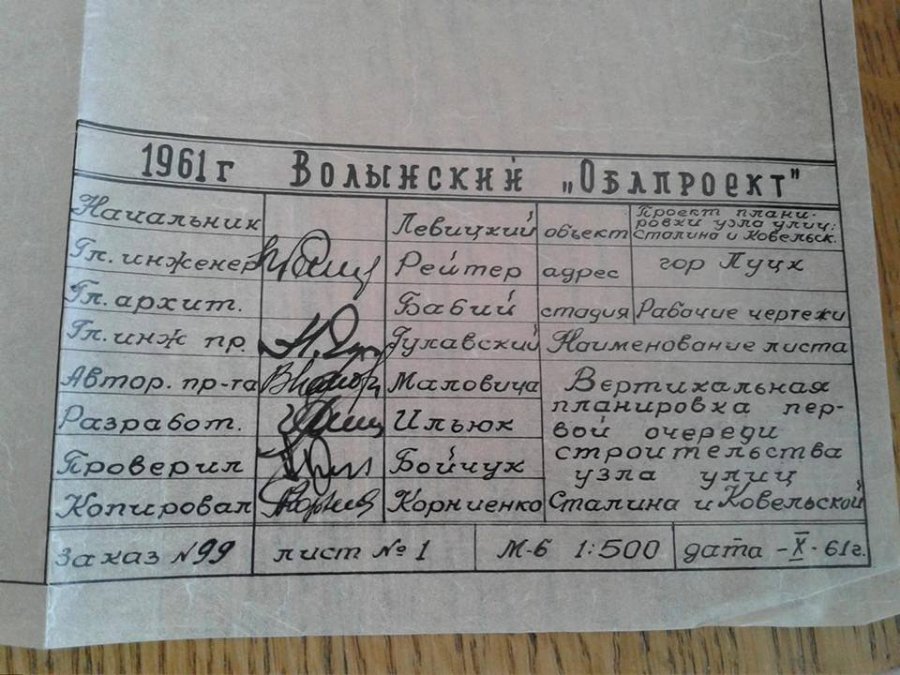 1961 г Волынский „Облпроект"
Начальник Левицкий объект Проект плани-
ровки узла улиц:
Сталина и Ковельск.
Гл. инженер Рейтер адрес гор Луцк
Гл. архит. Бабий стадия Рабочие чертежи
Гл. инж пр. Гулавский Наименование листа
Автор. пр-та Маловица Вертикальная
планировка пер-
Разработ. Ильюк вой очереди
строительства
Проверил Бойчук узла улиц
Копировал Корниенко Сталина и Ковельской
заказ N 99 лист № 1 М-б 1:500 дата -X-61г.